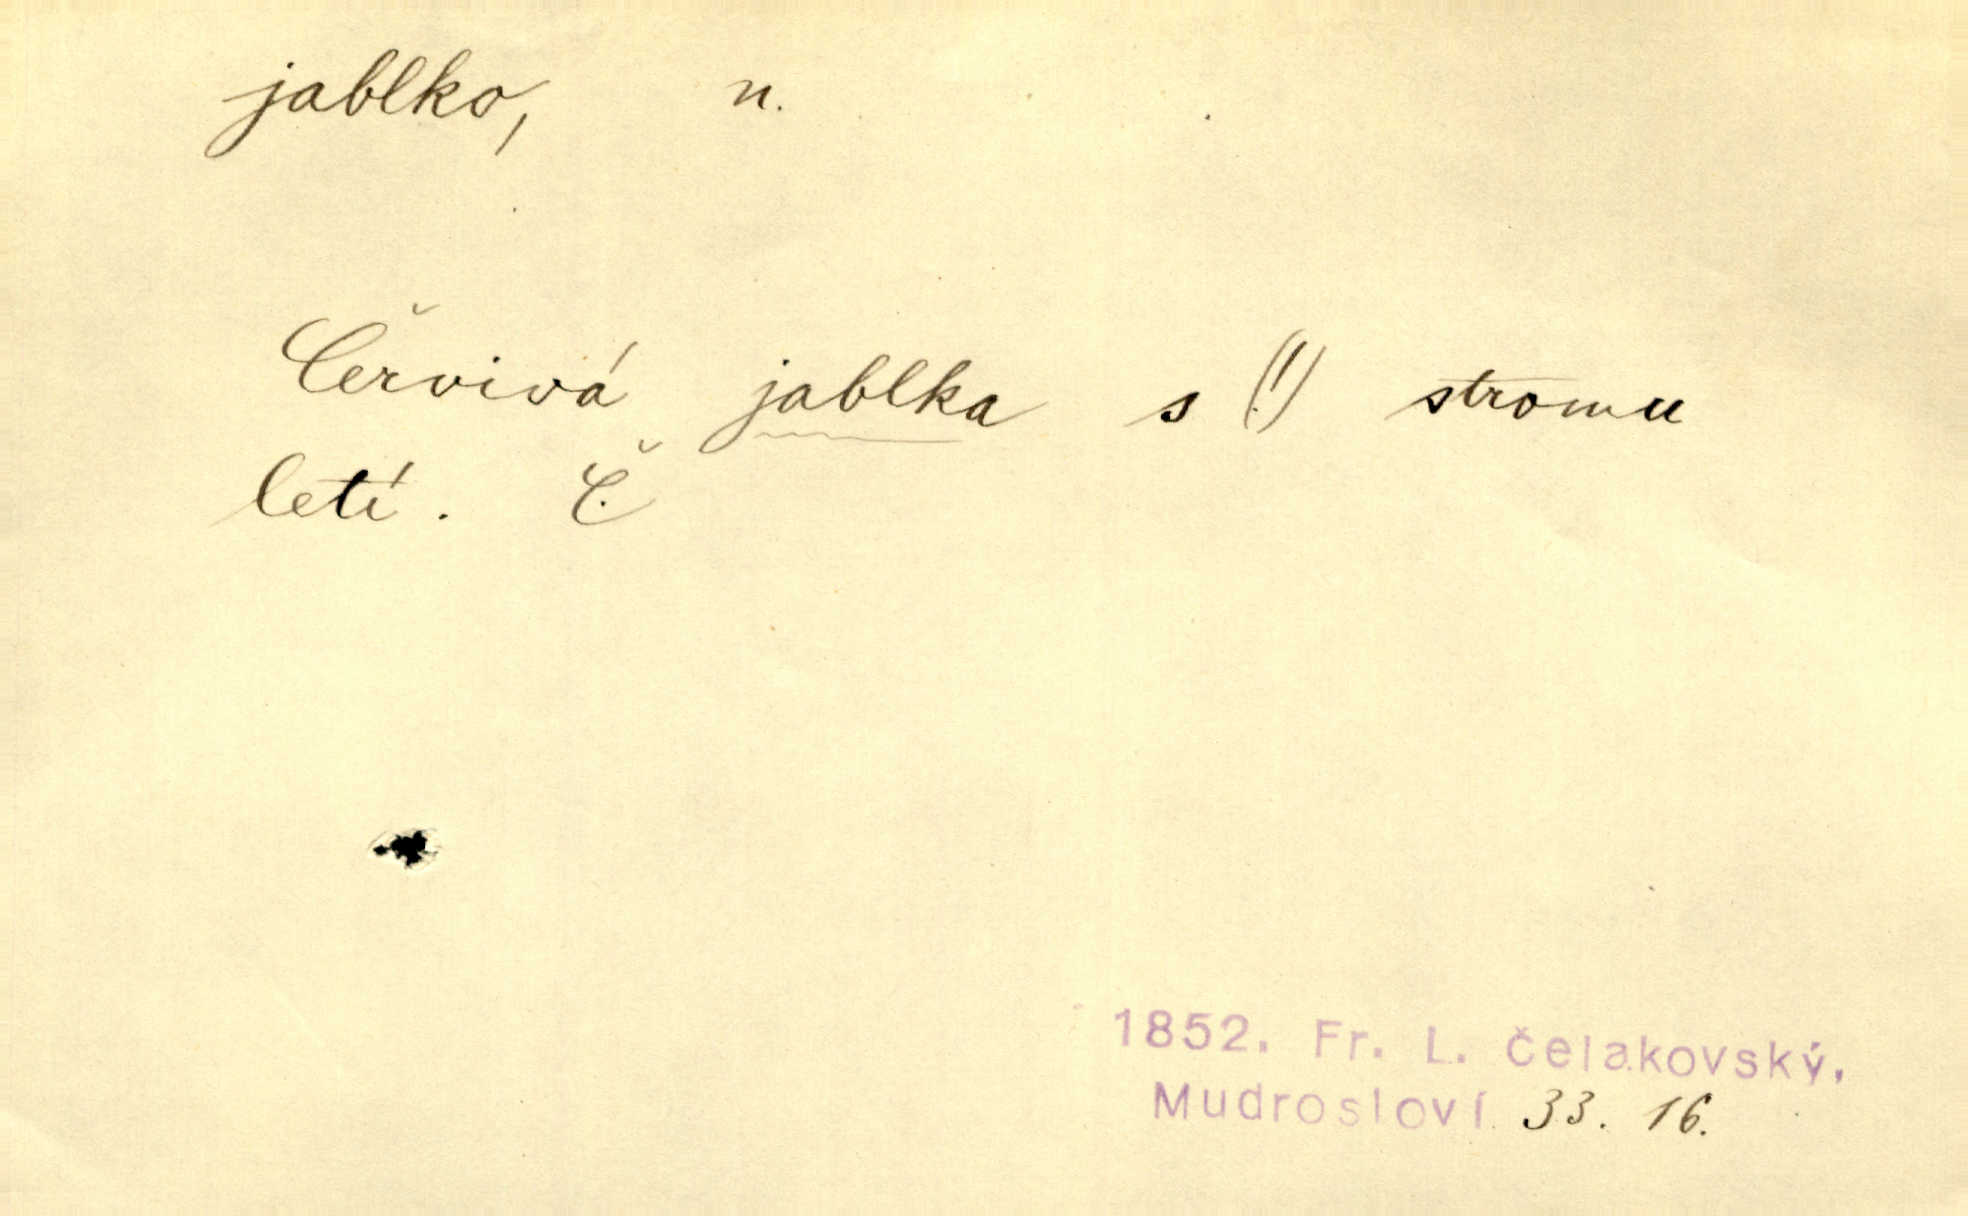 jablko, n.
Červivá jablka s (!) stromu
letí. Č.
1852. Fr. L. Čelakovský,
Mudrosloví 33. 16.